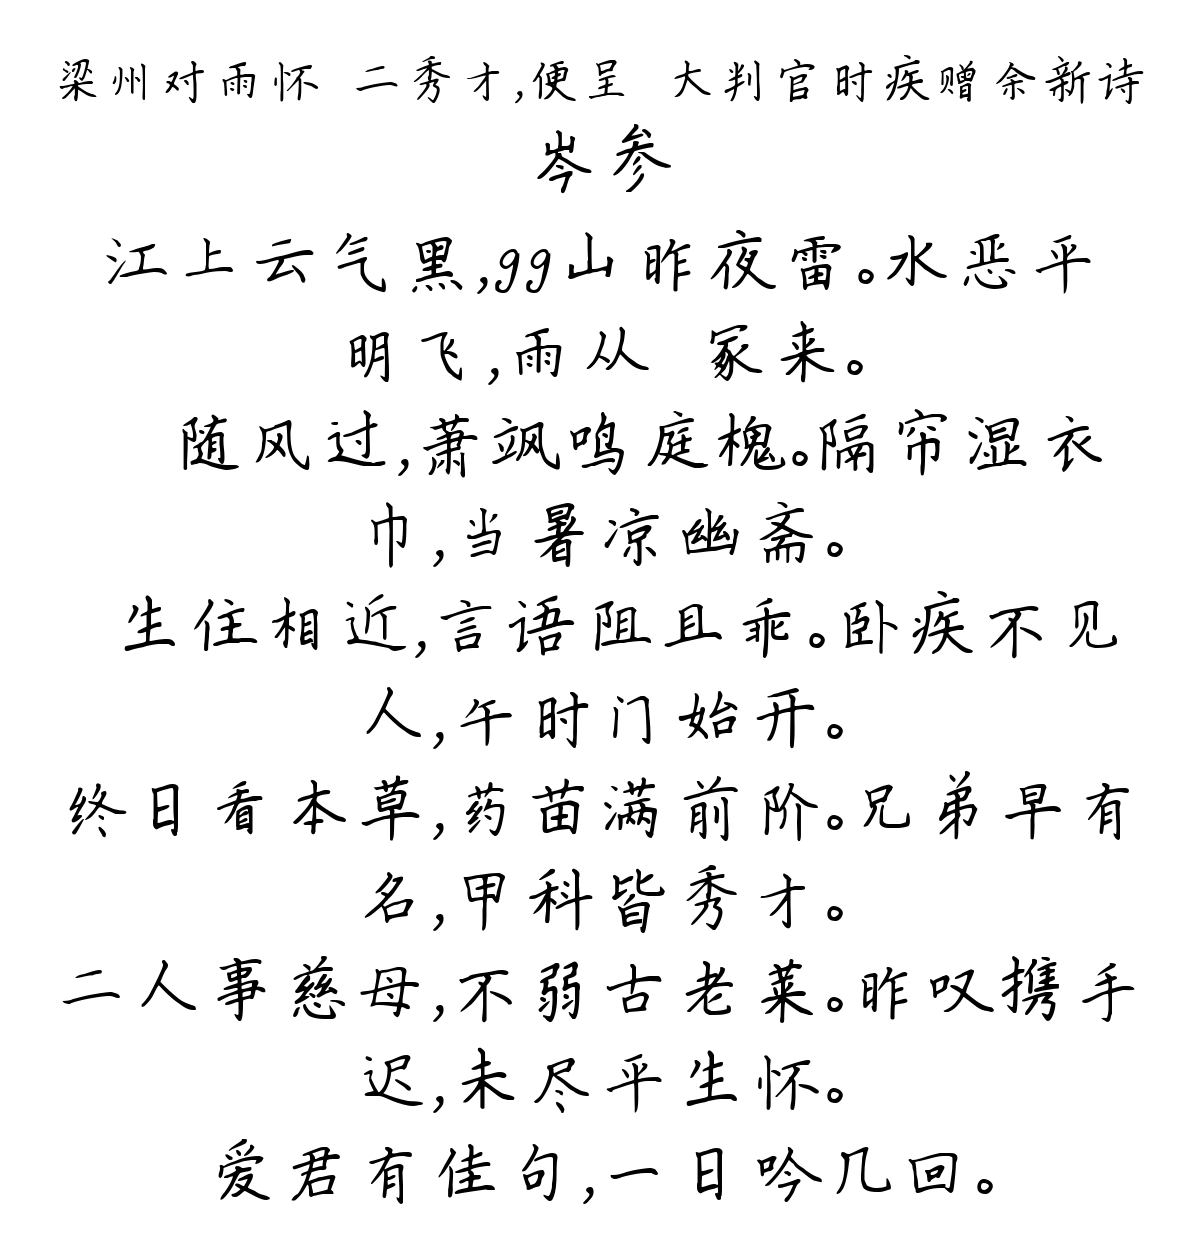 梁州对雨怀 二秀才,便呈 大判官时疾赠余新诗
岑参
江上云气黑,gg山昨夜雷。水恶平
明飞,雨从 冢来。
随风过,萧飒鸣庭槐。隔帘湿衣
巾,当暑凉幽斋。
生住相近,言语阻且乖。卧疾不见
人,午时门始开。
终日看本草,药苗满前阶。兄弟早有
名,甲科皆秀才。
二人事慈母,不弱古老莱。昨叹携手
迟,未尽平生怀。
爱君有佳句,一日吟几回。